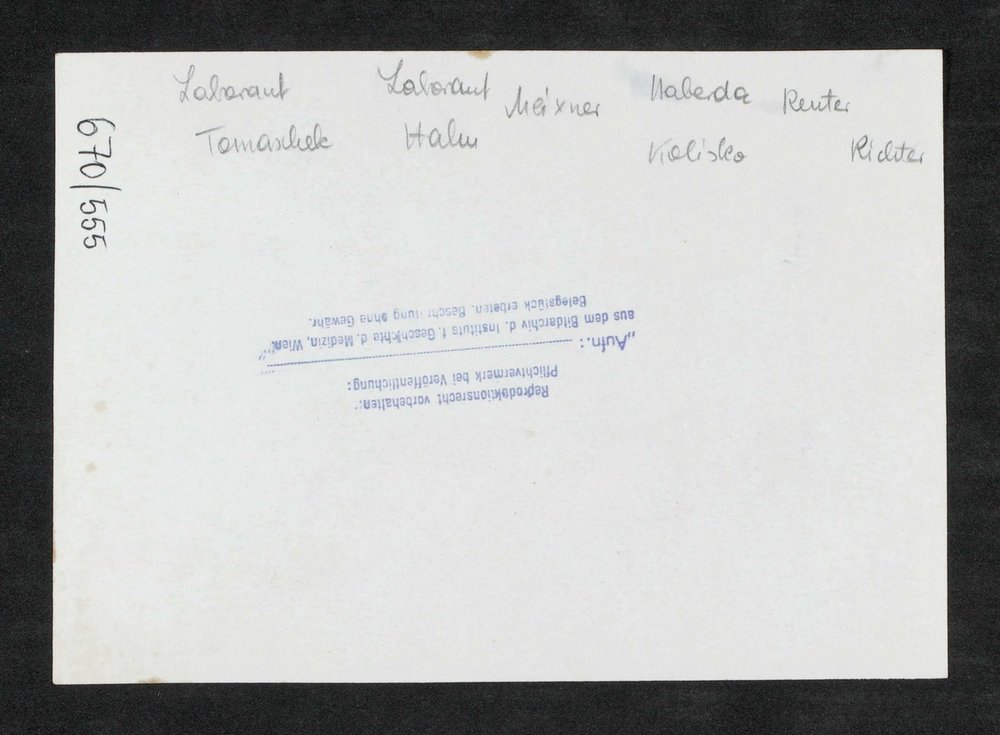 Laborant Laborant Meixner Haberda Reuter
Tomaschek Hahn Kolisko Richter
670/555
Reproduktionsrecht vorbehalten:
Pflichtvermerk bei Veröffentlichung:
„Aufn.:
aus dem Bildarchiv d. Instituts f. Geschichte d. Medizin, Wien“
Belegstück erbeten. Beschriftung ohne Gewähr.